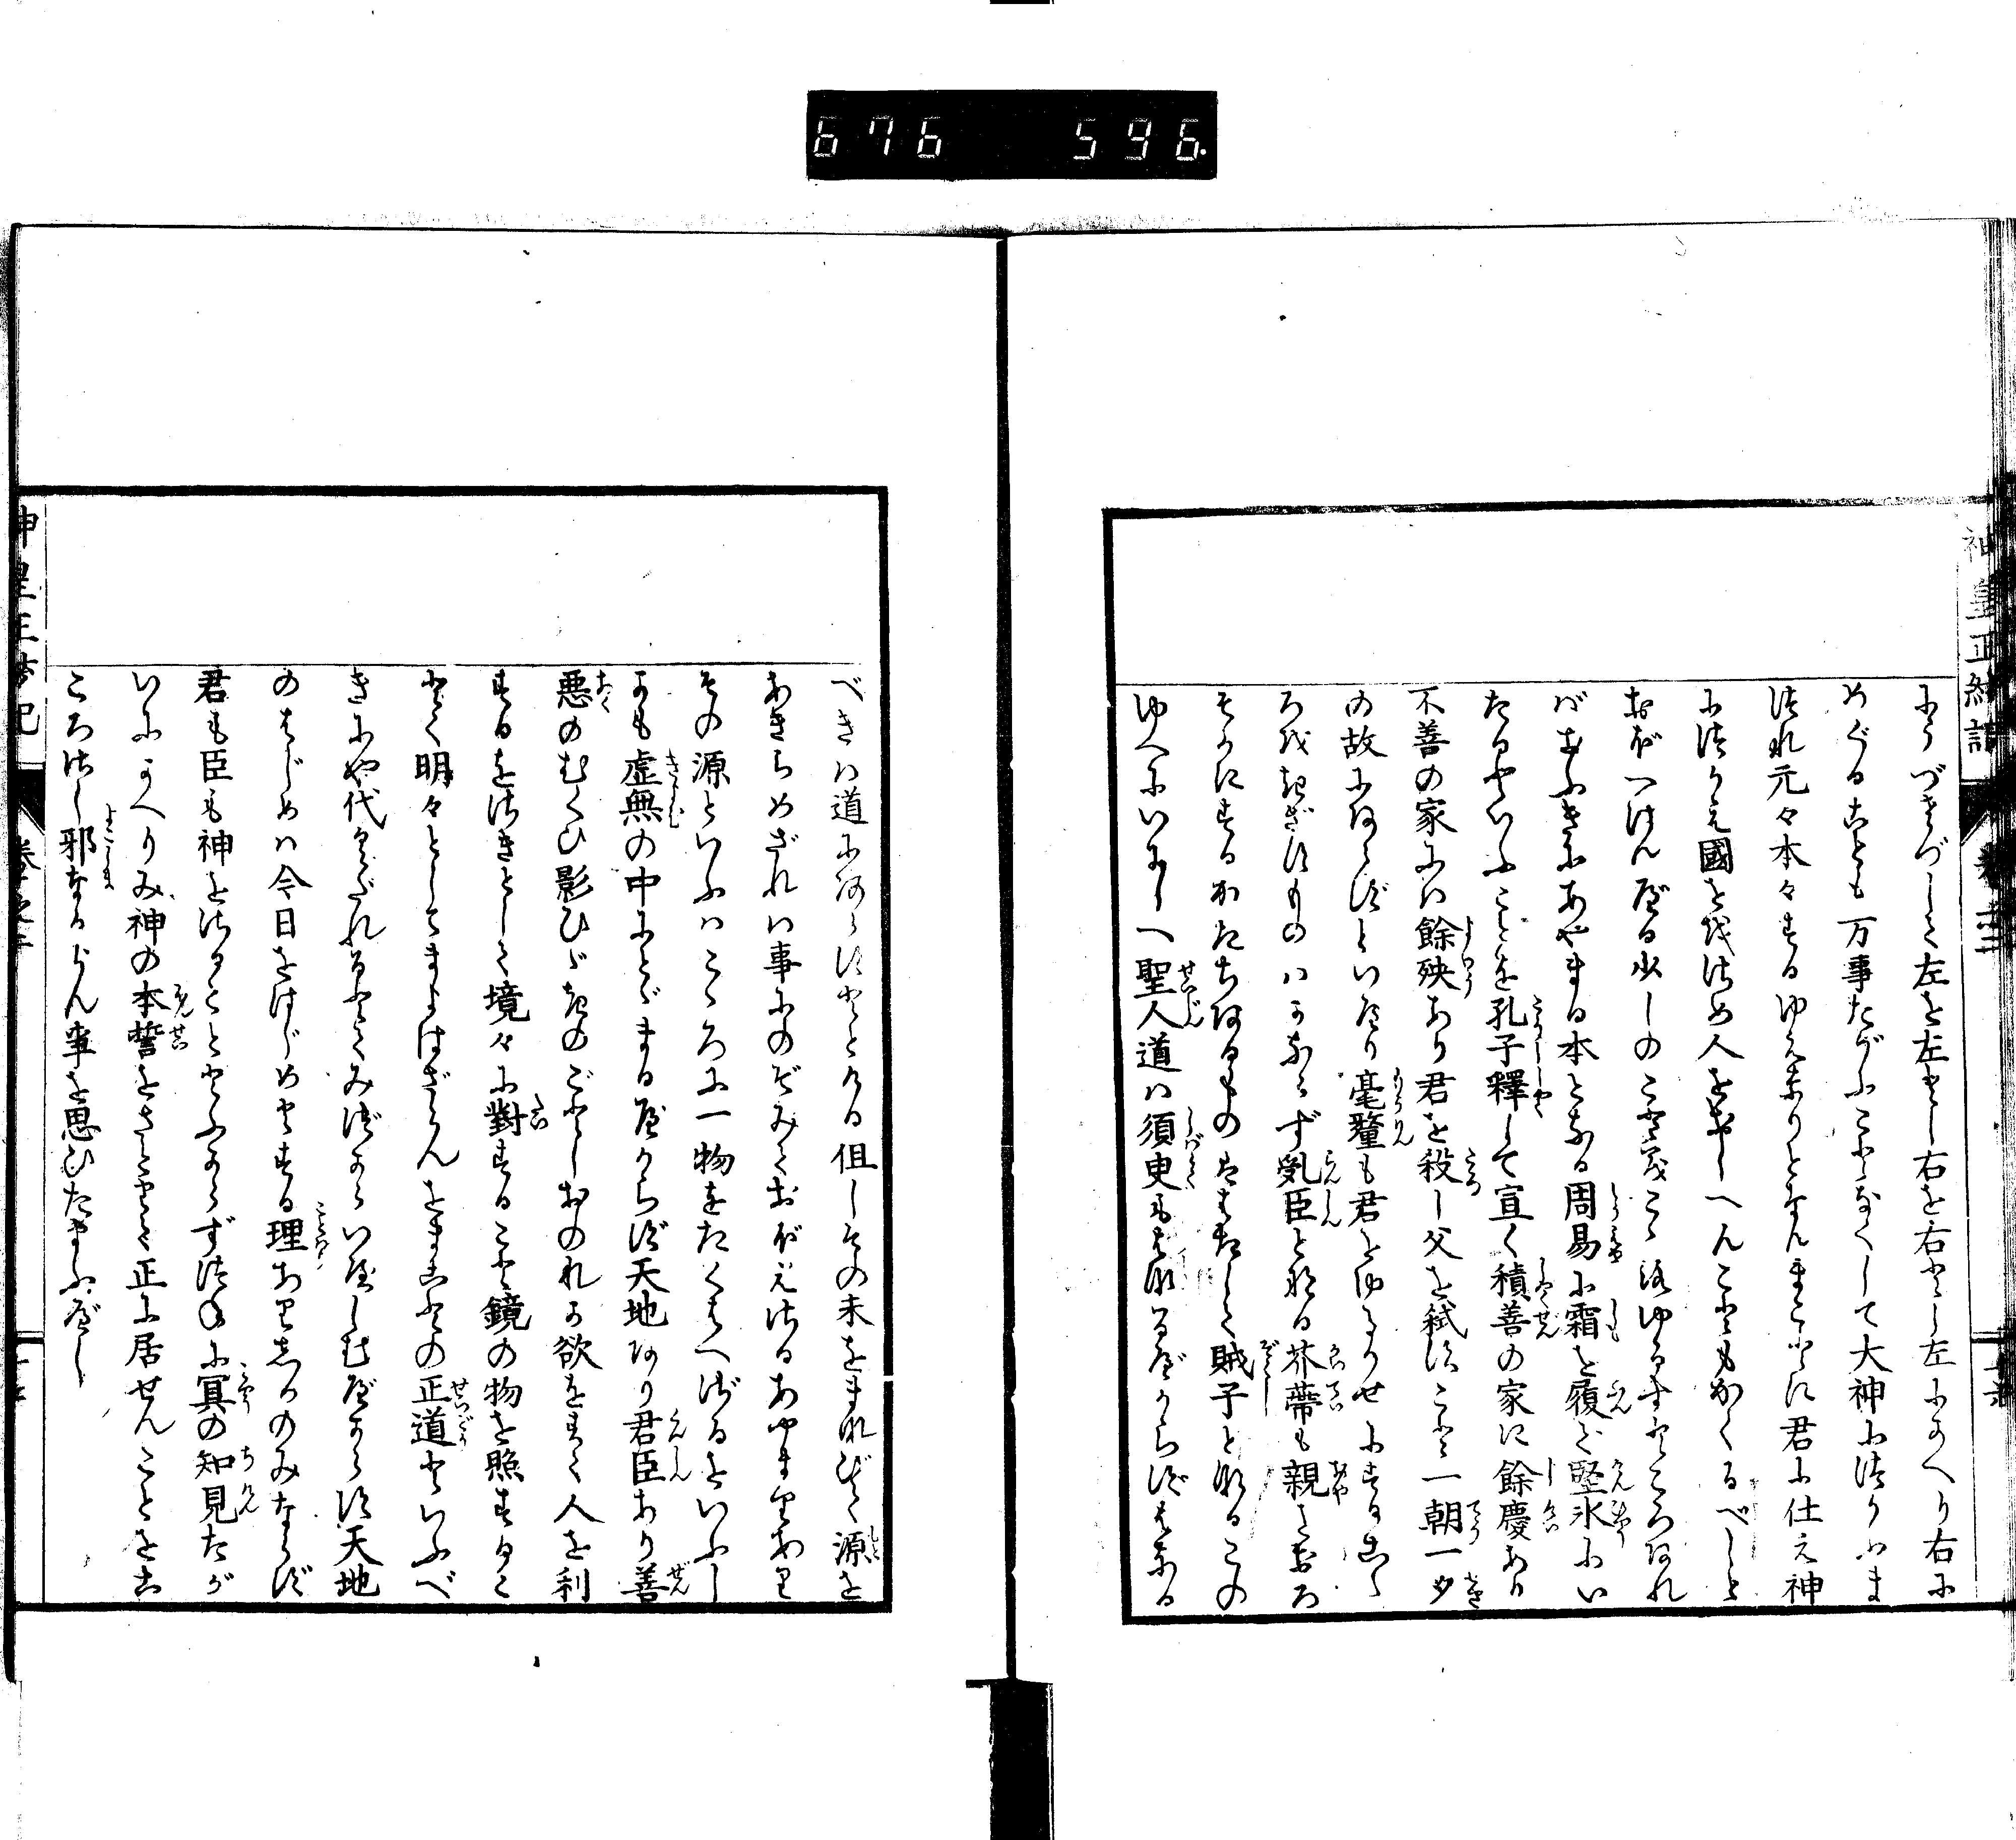 神皇正統記
にうつさずして左を左とし右を右とし左にかへり右に
めぐることも万事たがふことなくして大神につかふま
つれ元々本々するゆえなりとなんまことに君に仕え神
につかえ國を治め人をおしへんこともかくるべしと
おぼへけんべる少しのこと成こゝろゆるすところあれ
ばおふきにあやまる本となる周易に霜を履ば堅氷にい
たるといふことを孔子釋して宣く積善の家に餘慶あり
不善の家には餘殃あり君を殺し父を弑すこと一朝一夕
の故にあらずといへり毫釐も君をゆるかせにするこゝ
ろをきざすものはかならず乱臣となる芥蔕も親をおろ
そかにするかたちあるものはたして賊子となるこの
ゆへにいにしへ聖人道は須臾もはなるべからずはなる
べきは道にあらずととける但しその末をまなびて源を
あきらめざれは事にのぞみておぼえざるあやまりあり
その源といふはこゝろに一物をたくはへざるをいふし
かも虚無の中にとゞまるべからず天地あり君臣あり善
悪のむくひ影ひゞきのごとしおのれが欲をすて人を利
するをさきとして境々に對すること鏡の物を照すがご
とく明々としてまよはざらんをまことの正道といふべ
きにや代くだれるとてみづからいやしむべからず天地
のはじめは今日をはじめとする理ありしかのみならず
君も臣も神をさることとふからずつねに冥の知見をか
いにかへりみ神の本誓をさとりて正に居せんことをこ
ころざし邪なからん事を思ひたまふべし